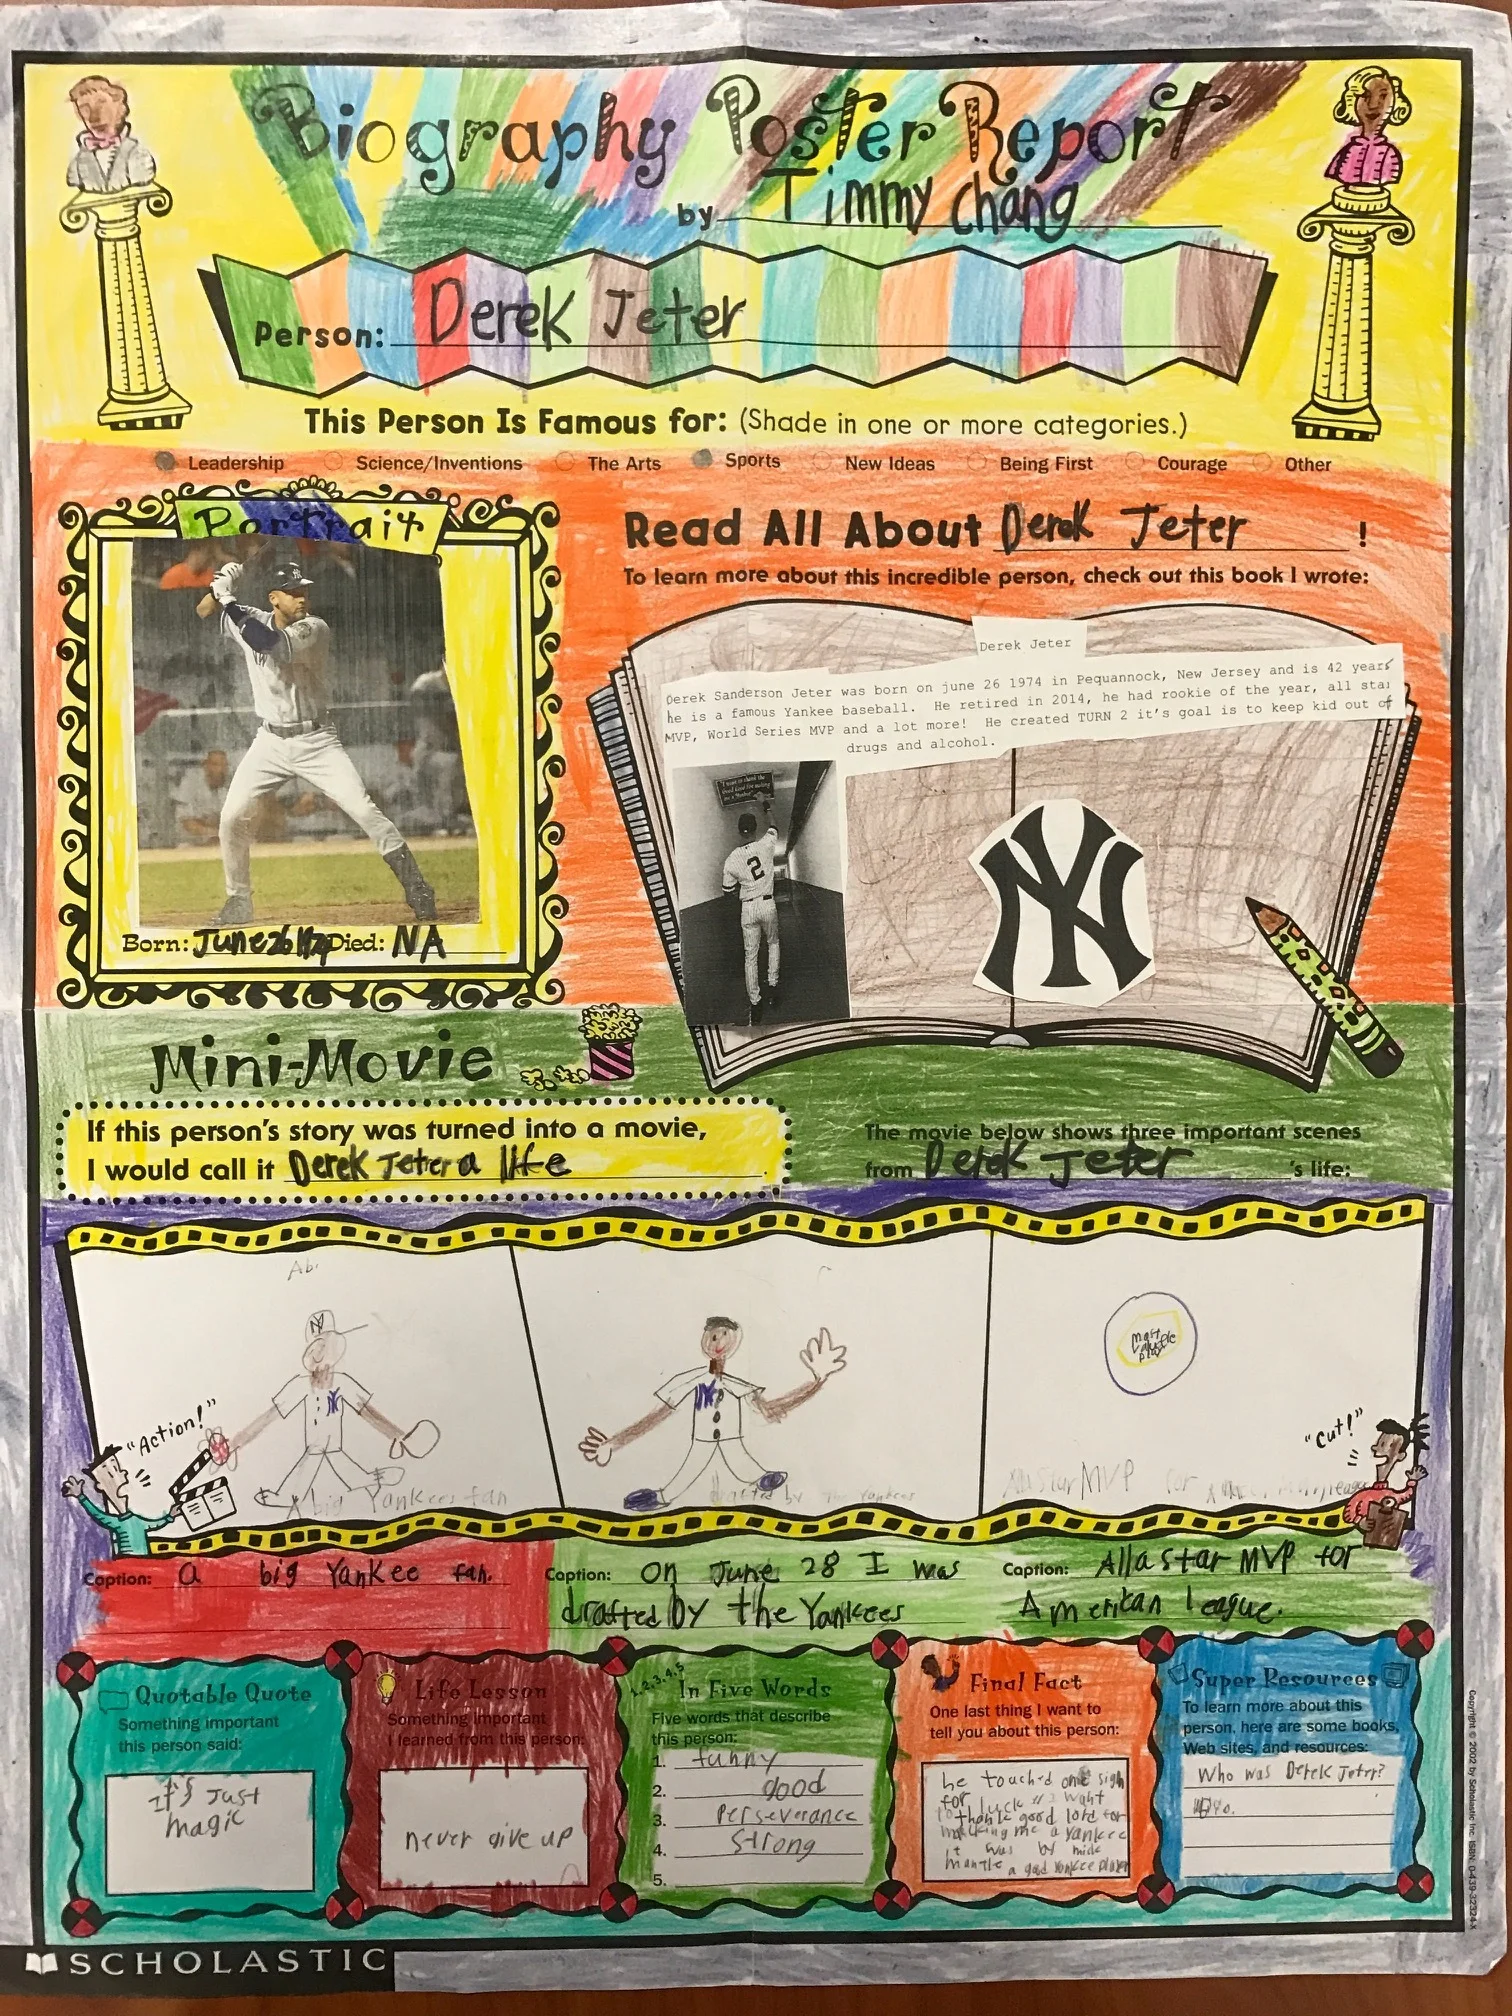 Biography Poster Report
by Timmy Chang
Person: Derek Jeter
This Person Is Famous for: (Shade in one or more categories.)
Leadership Science/Inventions The Arts Sports New Ideas Being First Courage Other
Portrait
Born: June 26 1974 Died: NA
Read All About Derek Jeter !
To learn more about this incredible person, check out this book I wrote:
Derek Jeter
Derek Sanderson Jeter was born on june 26 1974 in Pequannock, New Jersey and is 42 years
he is a famous Yankee baseball. He retired in 2014, he had rookie of the year, all star
MVP, World Series MVP and a lot more! He created TURN 2 it's goal is to keep kid out of
drugs and alcohol.
"I want to thank the
Good Lord for making
me a Yankee"
2
NY
Mini-Movie
If this person's story was turned into a movie,
I would call it Derek Jeter a life.
The movie below shows three important scenes
from Derek Jeter 's life:
Ab
NY
NY
"Action!"
A big Yankees fan
NY
drafted by the Yankees
most
valuable
play
"Cut!"
All a star MVP for American league
Caption: a big Yankee fan.
Caption: On June 28 I was
drafted by the Yankees
Caption: All a star MVP for
American league.
Quotable Quote
Something important
this person said:
It's Just
magic
Life Lesson
Something important
I learned from this person:
never give up
1,2,3,4,5
In Five Words
Five words that describe
this person:
1. funny
2. good
3. Perseverance
4. Strong
5.
Final Fact
One last thing I want to
tell you about this person:
he touched one sign
for luck I want
to thank good lord for
making me a Yankee
it was by mick
mantle a good Yankee player
Super Resources
To learn more about this
person, here are some books,
Web sites, and resources:
Who was Derek Jeter?
SCHOLASTIC
Copyright © 2002 by Scholastic Inc. ISBN: 0-439-32324-X